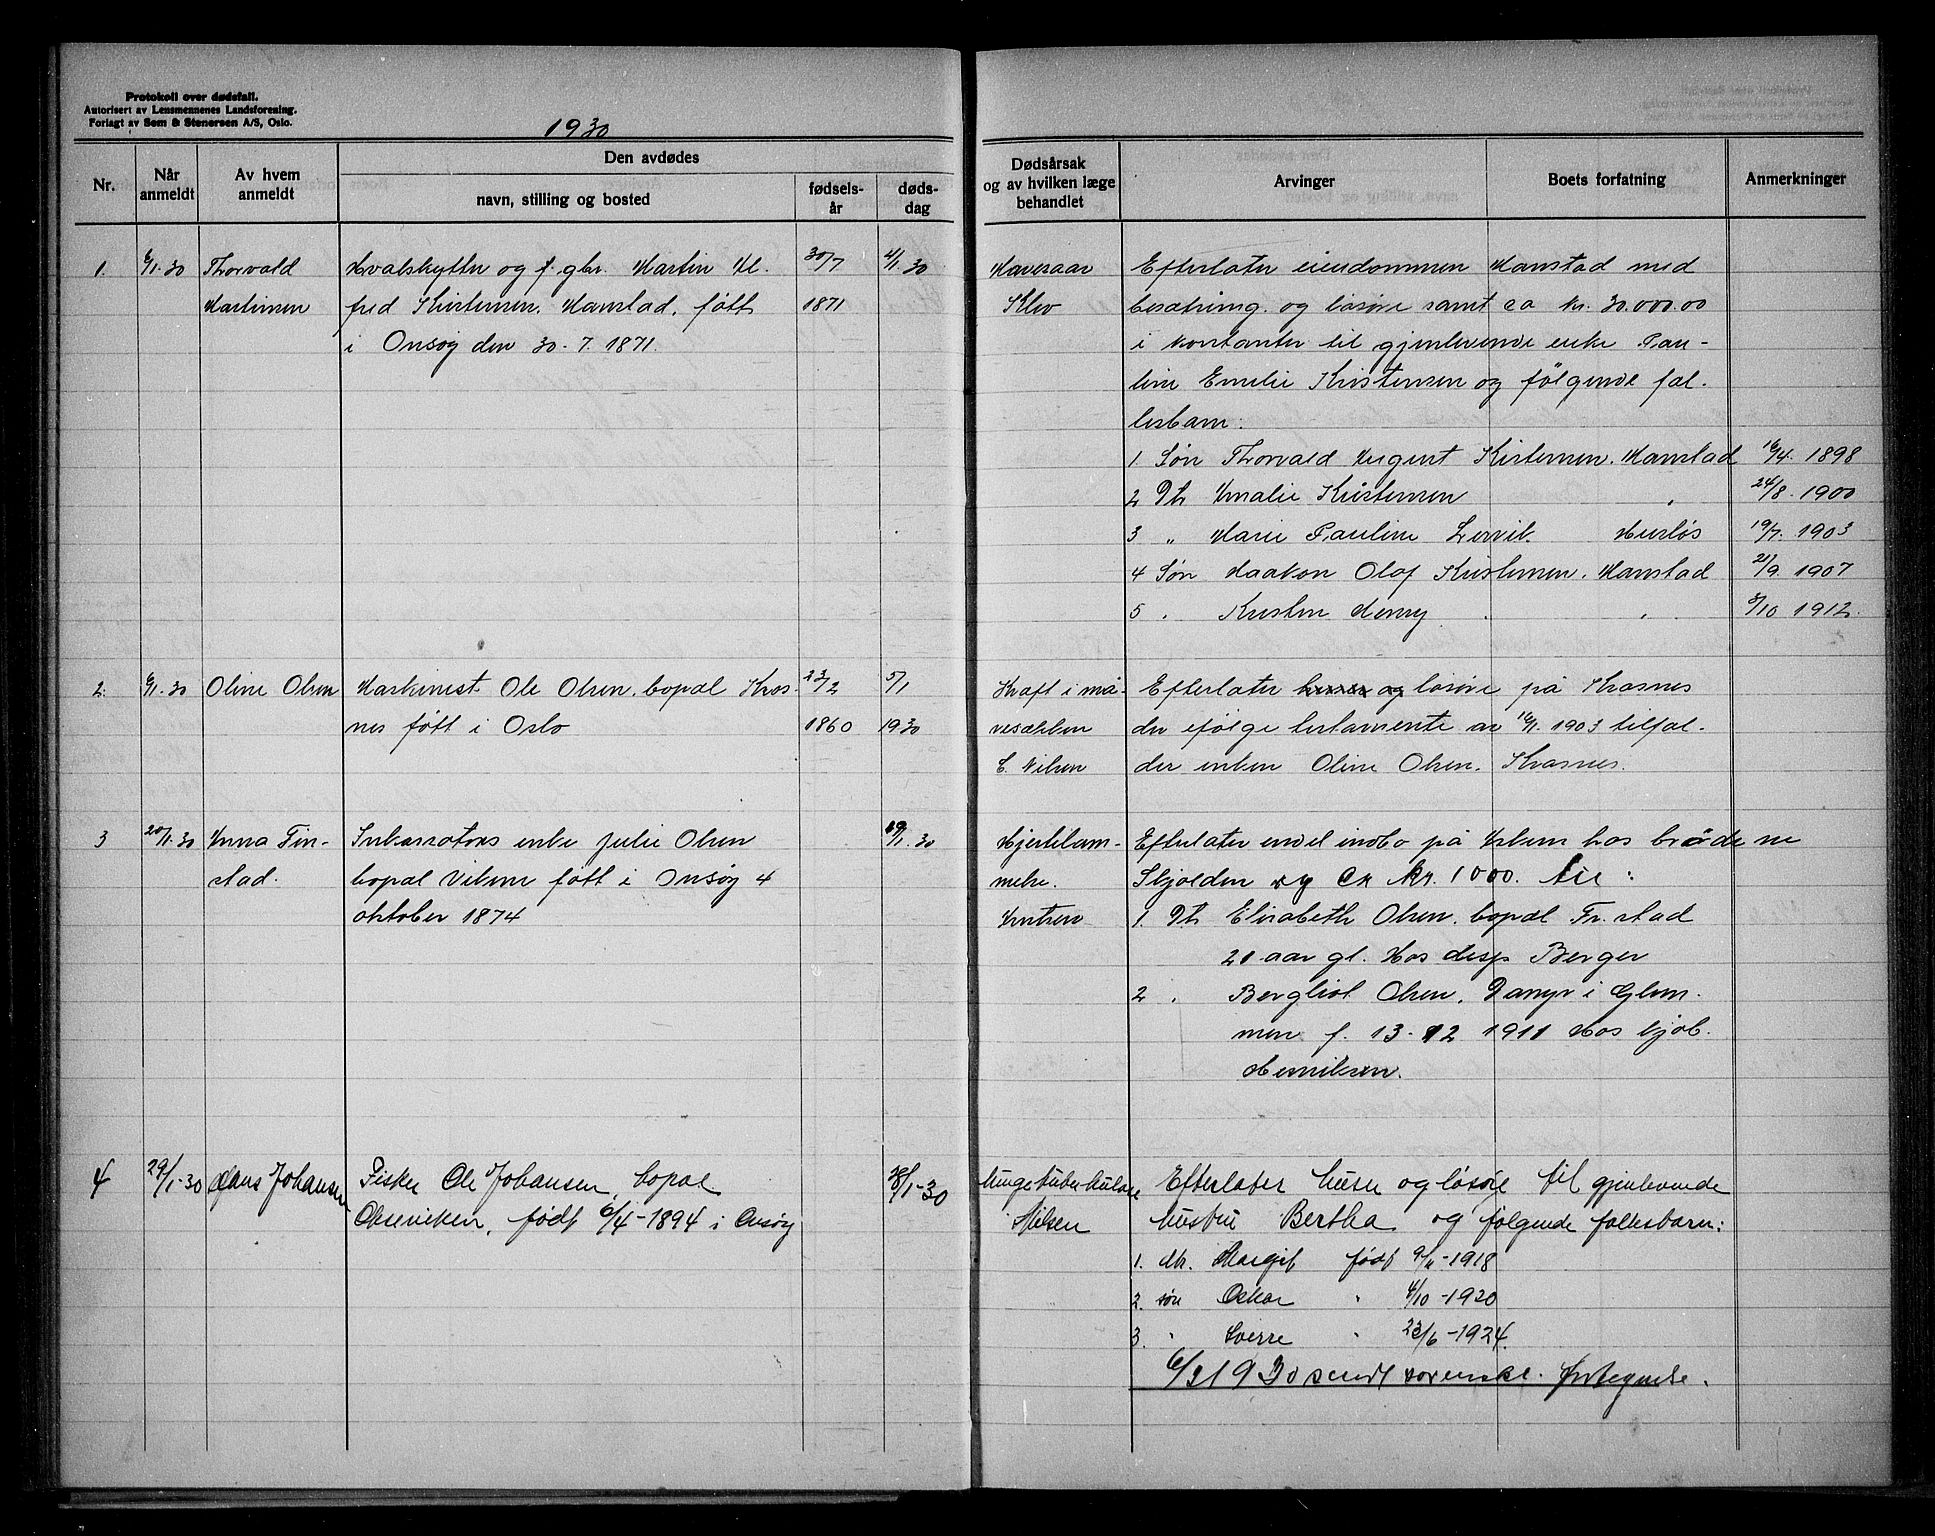 Protokoll over dødsfall.
Autorisert av Lensmennenes Landsforening.
Forlagt av Sem & Stenersen A/S, Oslo.
1930
Nr.
Når anmeldt
Av hvem anmeldt
Den avdødes
navn, stilling og bosted
fødselsår
dødsdag
Dødsårsak og av hvilken læge behandlet
Arvinger
Boets forfatning
Anmerkninger
1. 6/1.30 Thorvald Hvalskytter og f. gbr. Martin Al. 30/7 4/1.30
Martinsen fred Kristensen. Manstad, født 1871
i Onsøy den 30-7.1871.
Mavesaar
Klev
Efterlater eiendommen Manstad med
besætning og løsøre samt ca kr. 30.000.00
i kontanter til gjenlevende enke Pau-
line Emelie Kristensen og følgende fæl-
lesbarn:
1 Søn Thorvald August Kristensen. Manstad 16/4. 1898
2 Dtr Amalie Kristensen " 24/8. 1900
3 " Marie Pauline Lervik Mærløs 19/7. 1903
4 Søn Haakon Olaf Kristensen. Manstad 21/9. 1907
5 " Kristen Henry " " 3/10 1912.
2. 6/1.30 Oline Olsen Maskinist Ole Olsen, bopæl Kros- 23/2 5/1
nes født i Oslo 1860 1930
Kræft i ma-
vesækken
E. Nilsen
Efterlater huset og løsøre på Krosnes
der efølge testamente av 16/1. 1903 tilfal-
der enken Oline Olsen. Krosnes.
3 20/1.30 Anna Tin- Inkassators enke Julie Olsen 19/1.30
stad. bopæl Viken født i Onsøy 4
oktober 1874
Hjertelam-
melse.
Knutsen
Efterlater endel indbo på Viken hos brødrene
Skjolden og ca kr. 1000. til:
1. Dtr Elisabeth Olsen. bopæl Fr.stad
20 aar gl. Hos disp Berger
2 " Bergliot Olsen, Damyr i Glem-
men f. 13-12 1911 Hos kjøb.
Henriksen.
4 29/1-30 Hans Johansen Fisker Ole Johansen, bopæl 28/1-30
Okseviken, født 6/4-1894 i Onsøy
Lungetuberkulose
Nilsen
Efterlater huse og løsøre til gjenlevende
hustru Bertha og følgende fællesbarn:
1. dtr. Margit født 9/11-1918
2. søn Oskar " 4/10-1920
3. " Sverre " 23/6-1924.
6/2 1930 sendt sorenskr. fortegnelse.